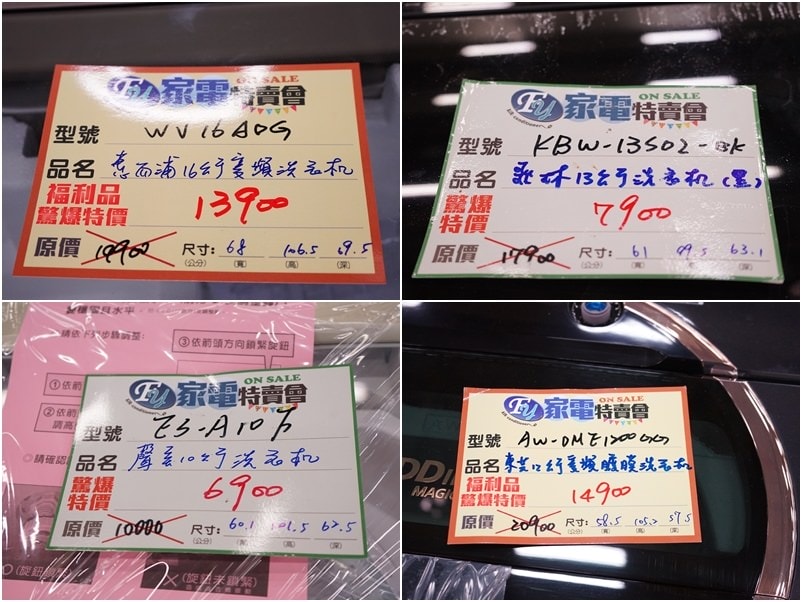 FY 家電特賣會
ON SALE
型號 WV16ADG
品名 惠而浦16公斤變頻洗衣机
福利品
驚爆特價 13900
原價 尺寸: 68 106.5 69.5
(公分) (寬) (高) (深)
FY 家電特賣會
ON SALE
型號 KBW-13S02-BK
品名 歌林13公斤洗衣机(黑)
驚爆
特價 7900
原價 17900 尺寸: 61 99.5 63.1
(公分) (寬) (高) (深)
請依下列步驟調整:
③依箭頭方向鎖緊旋鈕
①依箭
②依箭
調高
◎請確認
FY 家電特賣會
ON SALE
型號 ES-A10F
品名 聲宝10公斤洗衣机
驚爆
特價 6900
原價 10000 尺寸: 60.1 101.5 62.5
(公分) (寬) (高) (深)
(旋鈕鎖緊)
(旋鈕未鎖緊)
FY 家電特賣會
ON SALE
型號
品名 東芝12公斤變頻鍍膜洗衣机
福利品
驚爆特價 14900
原價 20900 尺寸: 58.5 105.2 57.5
(公分) (寬) (高) (深)
MAGIC